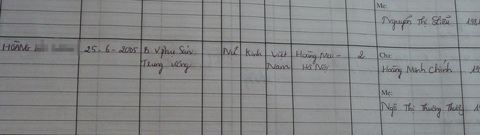 Mẹ:
Nguyễn Thị
HOÀNG
25-6-2005
B. V phụ Sản
Trung ương
Nữ
Kinh
Việt
Nam
Hoàng Mai -
Hà Nội
2
Cha:
Hoàng Minh Chính
Mẹ:
Ngô Thị Thương